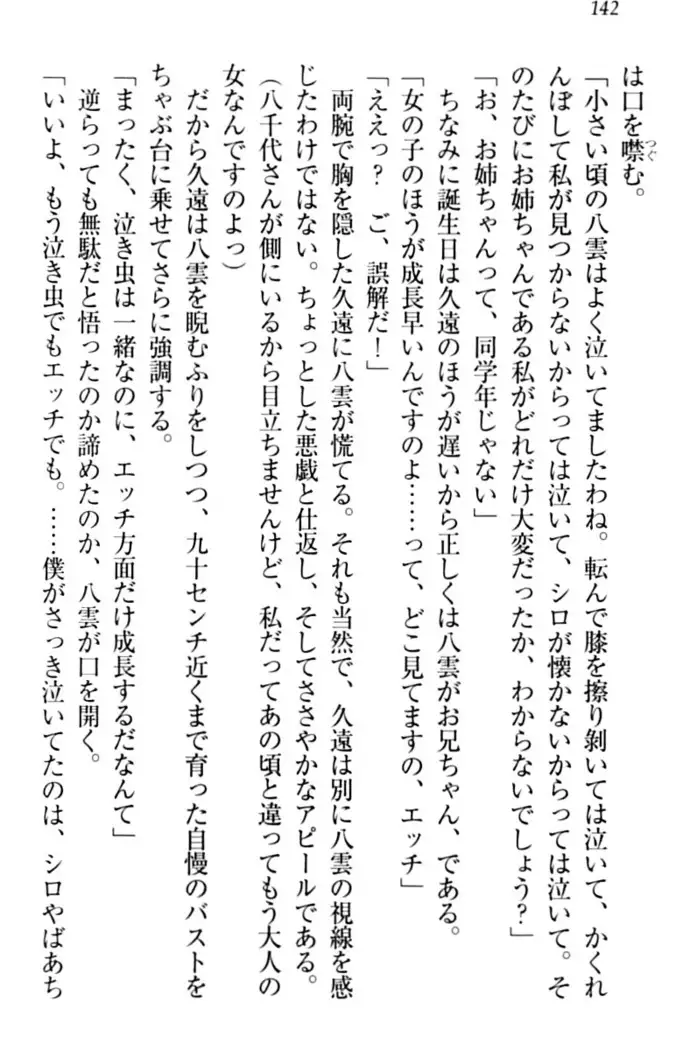 142
は口を噤む。
「小さい頃の八雲はよく泣いてましたわね。転んで膝を擦り剥いては泣いて、かくれ
んぼして私が見つからないからっては泣いて、シロが懐かないからっては泣いて。そ
のたびにお姉ちゃんである私がどれだけ大変だったか、わからないでしょう？」
「お、お姉ちゃんって、同学年じゃない」
ちなみに誕生日は久遠のほうが遅いから正しくは八雲がお兄ちゃん、である。
「女の子のほうが成長早いんですのよ……って、どこ見てますの、エッチ」
「ええっ？　ご、誤解だ！」
両腕で胸を隠した久遠に八雲が慌てる。それも当然で、久遠は別に八雲の視線を感
じたわけではない。ちょっとした悪戯と仕返し、そしてささやかなアピールである。
（八千代さんが側にいるから目立ちませんけど、私だってあの頃と違ってもう大人の
女なんですのよっ）
だから久遠は八雲を睨むふりをしつつ、九十センチ近くまで育った自慢のバストを
ちゃぶ台に乗せてさらに強調する。
「まったく、泣き虫は一緒なのに、エッチ方面だけ成長するだなんて」
逆らっても無駄だと悟ったのか諦めたのか、八雲が口を開く。
「いいよ、もう泣き虫でもエッチでも。……僕がさっき泣いてたのは、シロやばあち